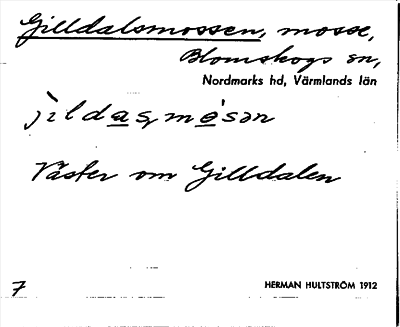 Gilldalsmossen, mosse,
Blomskogs sn,
Nordmarks hd, Värmlands län
jildasmosən
Väster om Gilldalen
7
HERMAN HULTSTRÖM 1912